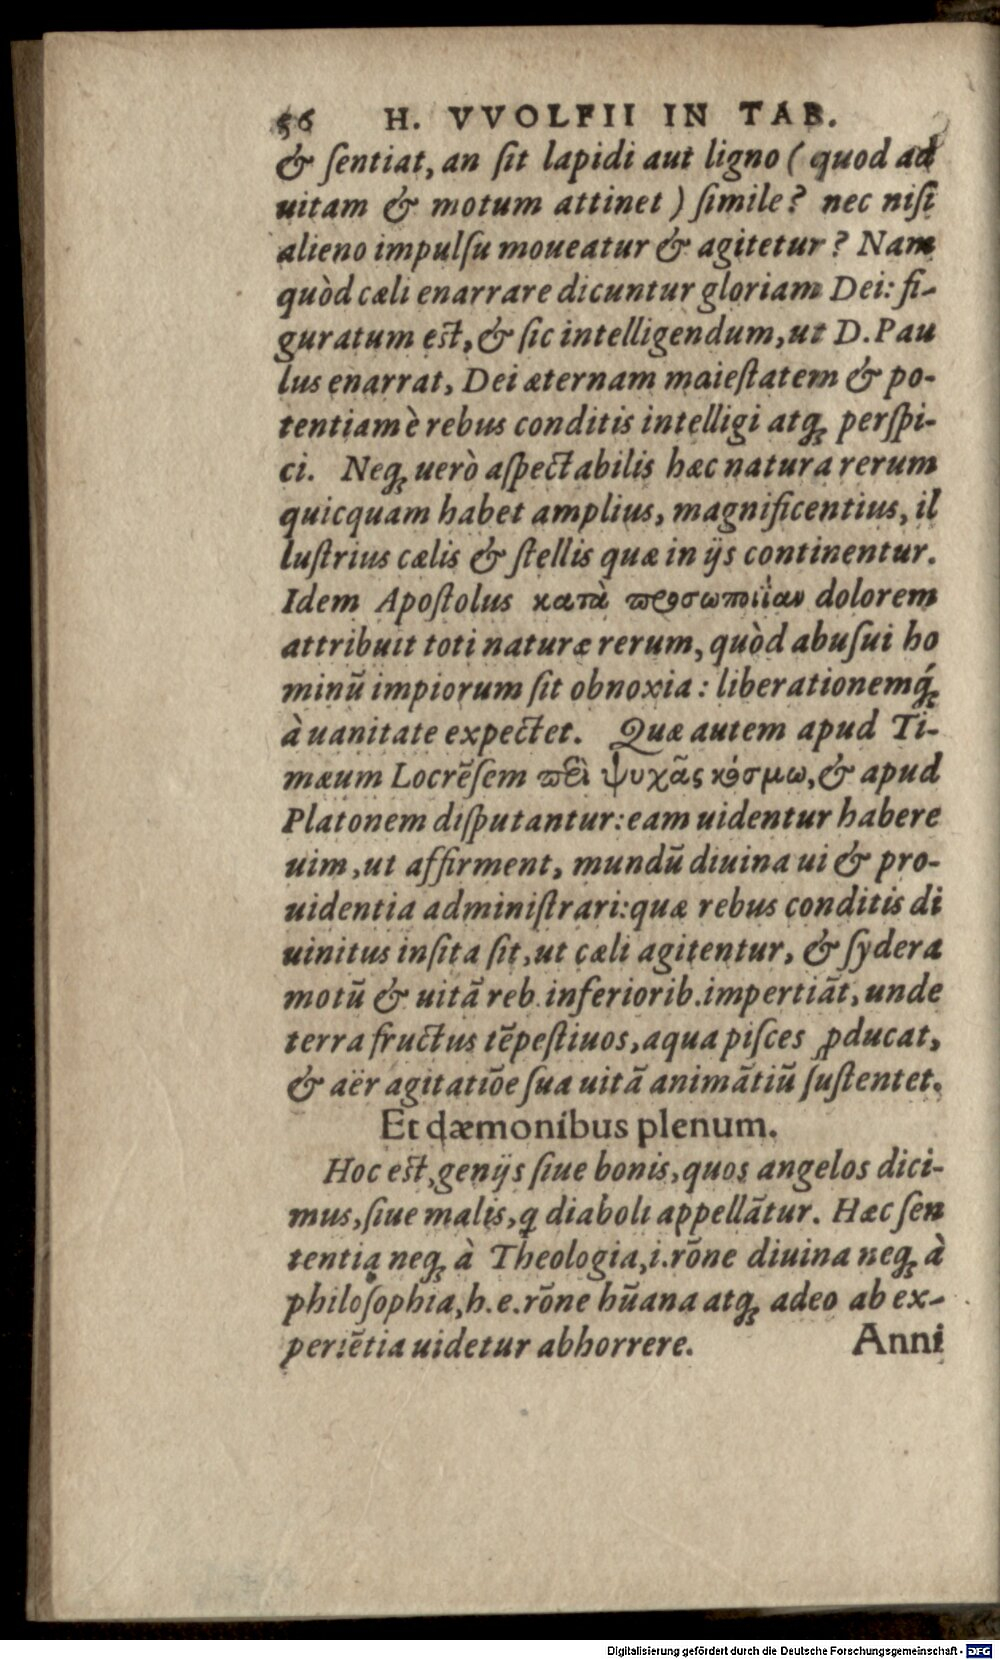 56 H. VVOLFII IN TAB.
& ſentiat, an ſit lapidi aut ligno ( quod ad
uitam & motum attinet ) ſimile? nec niſi
alieno impulſu moueatur & agitetur? Nam
quòd cæli enarrare dicuntur gloriam Dei: fi-
guratum eſt, & ſic intelligendum, ut D. Pau
lus enarrat, Dei æternam maieſtatem & po-
tentiam è rebus conditis intelligi atq; perſpi-
ci. Neq; uerò aſpectabilis hæc natura rerum
quicquam habet amplius, magnificentius, il
luſtrius cælis & ſtellis quæ in ijs continentur.
Idem Apoſtolus κατὰ προσωποιΐαν dolorem
attribuit toti naturæ rerum, quòd abuſui ho
minū impiorum ſit obnoxia: liberationemq́;
à uanitate expectet. Quæ autem apud Ti-
mæum Locrēſem περὶ ψυχᾶς κόσμω, & apud
Platonem diſputantur: eam uidentur habere
uim, ut affirment, mundū diuina ui & pro-
uidentia adminiſtrari: quæ rebus conditis di
uinitus inſita ſit, ut cæli agitentur, & ſydera
motū & uitā reb. inferiorib. impertiāt, unde
terra fructus tēpeſtiuos, aqua piſces ꝓducat,
& aër agitatiōe ſua uitā animātiū ſuſtentet.
Et dæmonibus plenum.
Hoc eſt, genijs ſiue bonis, quos angelos dici-
mus, ſiue malis, q diaboli appellātur. Hæc ſen
tentia neq; à Theologia, i. rōne diuina neq; à
philoſophia, h. e. rōne hūana atq; adeo ab ex-
periētia uidetur abhorrere. Anni
Digitalisierung gefördert durch die Deutsche Forschungsgemeinschaft - DFG